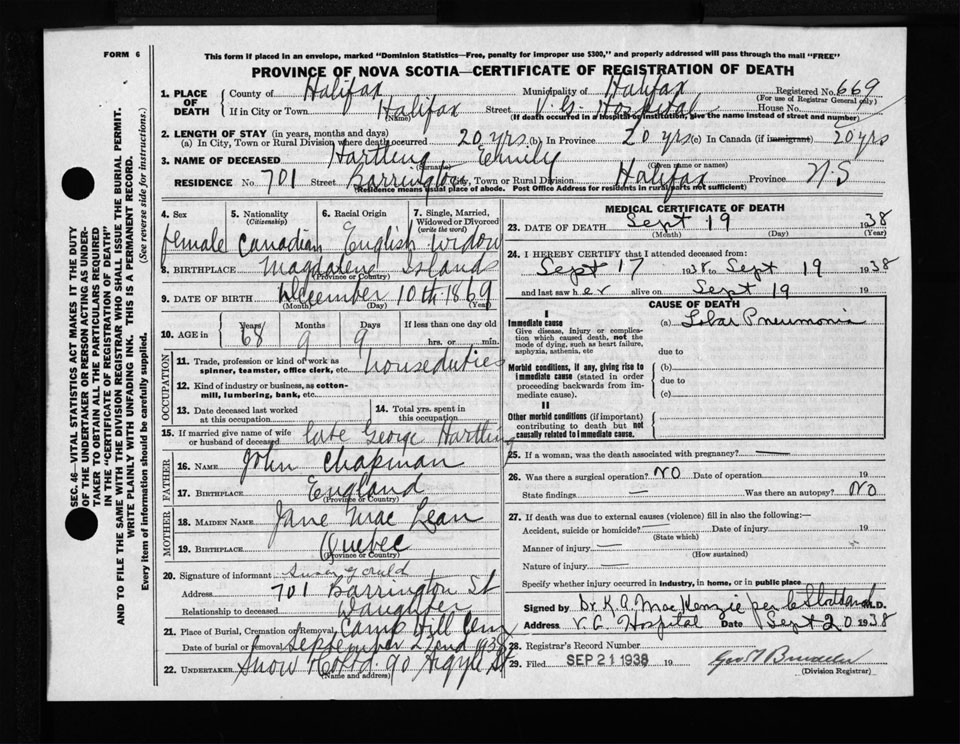 FORM 6
This form if placed in an envelope, marked "Dominion Statistics—Free, penalty for improper use $300," and properly addressed will pass through the mail "FREE"
PROVINCE OF NOVA SCOTIA—CERTIFICATE OF REGISTRATION OF DEATH
1. PLACE OF DEATH { County of Halifax Municipality of Halifax Registered No. 669
(For use of Registrar General only)
If in City or Town Halifax Street V. G. Hospital House No.
(Name) (If death occurred in a hospital or institution, give the name instead of street and number)
2. LENGTH OF STAY (in years, months and days)
(a) In City, Town or Rural Division where death occurred 20 yrs (b) In Province 20 yrs (c) In Canada (if immigrant) 20 yrs
3. NAME OF DECEASED Hartling Emily
(Surname) (Given name or names)
RESIDENCE No. 701 Street Barrington City, Town or Rural Division Halifax Province N.S
(Residence means usual place of abode. Post Office Address for residents in rural parts not sufficient)
4. Sex
female
5. Nationality
(Citizenship)
Canadian
6. Racial Origin
English
7. Single, Married, Widowed or Divorced
(write the word)
Widow
8. BIRTHPLACE Magdalene Islands
(Province or Country)
9. DATE OF BIRTH December 10th 1869
(Month) (Day) (Year)
10. AGE in { Years Months Days If less than one day old
68 9 9 hrs. or min.
OCCUPATION
11. Trade, profession or kind of work as spinner, teamster, office clerk, etc. house duties
12. Kind of industry or business, as cotton-mill, lumbering, bank, etc.
13. Date deceased last worked at this occupation
14. Total yrs. spent in this occupation
15. If married give name of wife or husband of deceased late George Hartling
FATHER
16. NAME John Chapman
17. BIRTHPLACE England
(Province or Country)
MOTHER
18. MAIDEN NAME Jane Mac Lean
19. BIRTHPLACE Quebec
(Province or Country)
20. Signature of informant Susan
Address 701 Barrington St
Relationship to deceased Daughter
21. Place of Burial, Cremation or Removal Camp Hill Cem
Date of burial or removal September 22nd 1938
22. UNDERTAKER Snow & Co Ltd 90 Argyle St
(Name and address)
MEDICAL CERTIFICATE OF DEATH
23. DATE OF DEATH Sept 19 1938
(Month) (Day) (Year)
24. I HEREBY CERTIFY that I attended deceased from:
Sept 17 1938 to Sept 19 1938
and last saw her alive on Sept 19 19
CAUSE OF DEATH
I
Immediate cause (a) Lobar Pneumonia
Give disease, injury or complication which caused death, not the mode of dying, such as heart failure, asphyxia, asthenia, etc
due to
Morbid conditions, if any, giving rise to immediate cause (stated in order proceeding backwards from immediate cause)
(b)
due to
(c)
II
Other morbid conditions (if important) contributing to death but not causally related to immediate cause.
25. If a woman, was the death associated with pregnancy? —
26. Was there a surgical operation? NO Date of operation 19
State findings — Was there an autopsy? No
27. If death was due to external causes (violence) fill in also the following:—
Accident, suicide or homicide? — Date of injury 19
(State which)
Manner of injury —
(How sustained)
Nature of injury —
Specify whether injury occurred in industry, in home, or in public place
Signed by Dr. K. A. Mac Kenzie per M.D.
Address V. G. Hospital Date Sept 20 1938
28. Registrar's Record Number
29. Filed SEP 21 1938 19
(Division Registrar)
SEC. 46—VITAL STATISTICS ACT MAKES IT THE DUTY
OF THE UNDERTAKER OR PERSON ACTING AS UNDER-
TAKER TO OBTAIN ALL THE PARTICULARS REQUIRED
IN THE "CERTIFICATE OF REGISTRATION OF DEATH"
AND TO FILE THE SAME WITH THE DIVISION REGISTRAR WHO SHALL ISSUE THE BURIAL PERMIT.
WRITE PLAINLY WITH UNFADING INK. THIS IS A PERMANENT RECORD.
Every item of information should be carefully supplied. (See reverse side for instructions.)